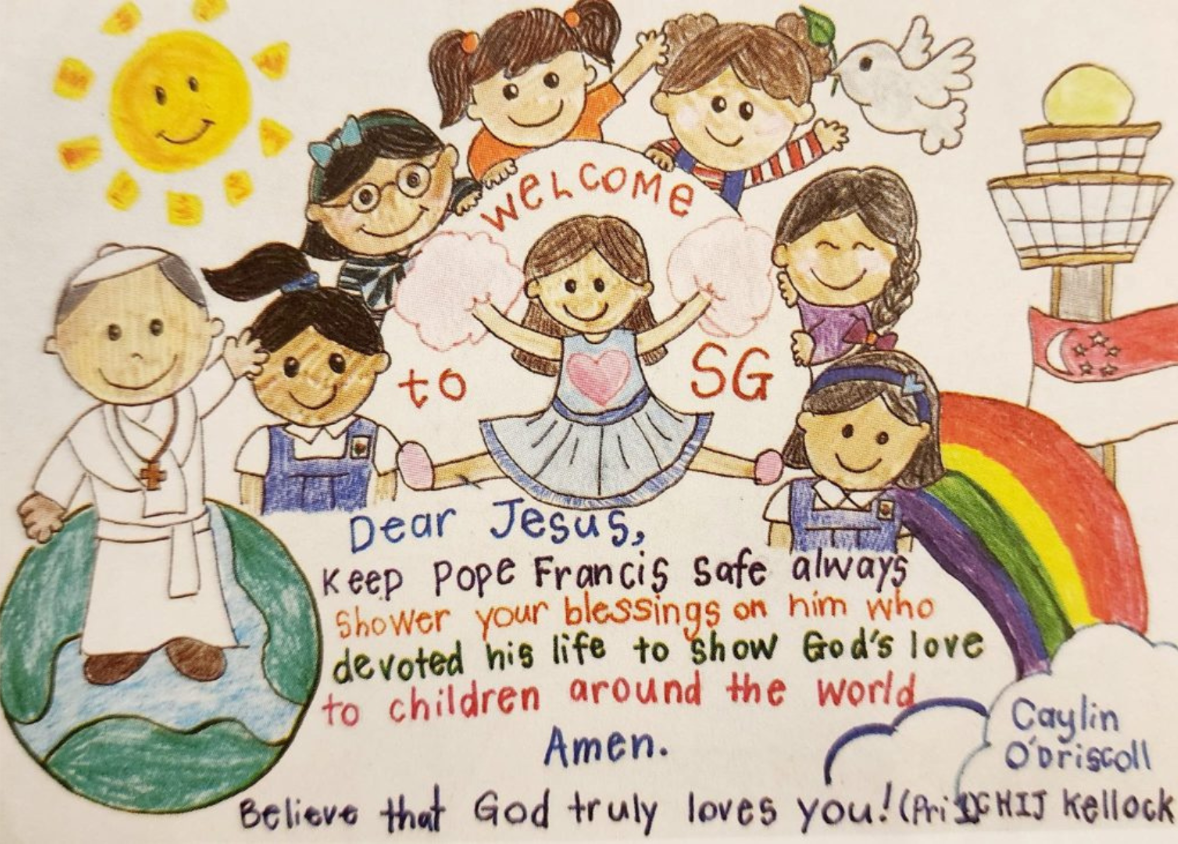 WELCOME
to SG
Dear Jesus,
Keep Pope Francis safe always
Shower your blessings on him who
devoted his life to show God's love
to children around the world
Amen.
Caylin
O'Driscoll
Believe that God truly loves you! (Pri CHIJ Kellock